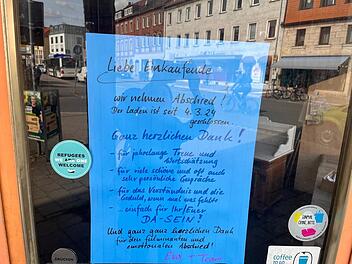 Liebe Einkaufende
wir nehmen Abschied!
Der Laden ist seit 4.3.24
geschlossen.
Ganz herzlichen Dank!
- für jahrelange Treue und
Wertschätzung
- für viele schöne und oft auch
sehr persönliche Gespräche
- für das Verständnis und die
Geduld, wenn mal was fehlt
- ... einfach für Ihr/Euer
DA-SEIN!
Und ganz ganz herzlichen Dank
für den fulminanten und
emotionalen Abschied!
Eva + Team
REFUGEES
WELCOME
coffee
to go